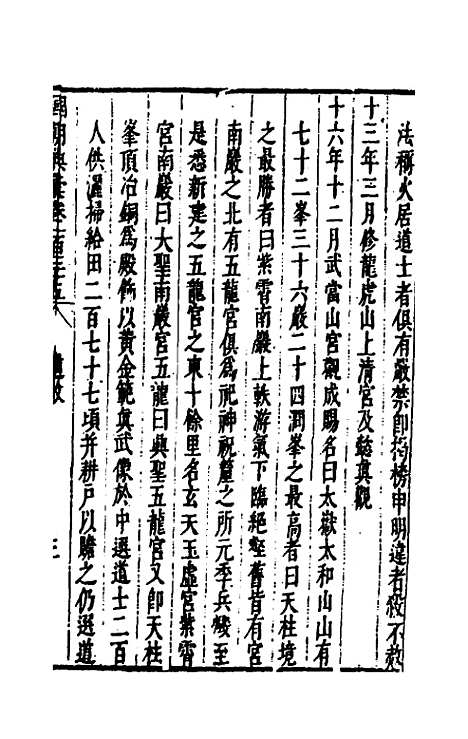 法稱火居道士者俱有嚴禁即揭榜申明違者殺不赦
十三年三月修龍虎山上清宮及懿真觀
十六年十二月武當山宮觀成賜名曰太嶽太和山山有
七十二峯三十六巖二十四澗峯之最高者曰天柱境
之最勝者曰紫霄南巖上軼游氣下臨絕壑舊皆有宮
南巖之北有五龍宮俱爲祀神祝釐之所元季兵燬至
是悉新建之五龍宮之東十餘里名玄天玉虛宮紫霄
宮南巖曰大聖南巖宮五龍曰興聖五龍宮又卽天柱
峯頂冶銅爲殿飾以黃金範真武像於中選道士二百
人供灑掃給田二百七十七頃并耕戶以贍之仍選道
國朝典彙卷
三